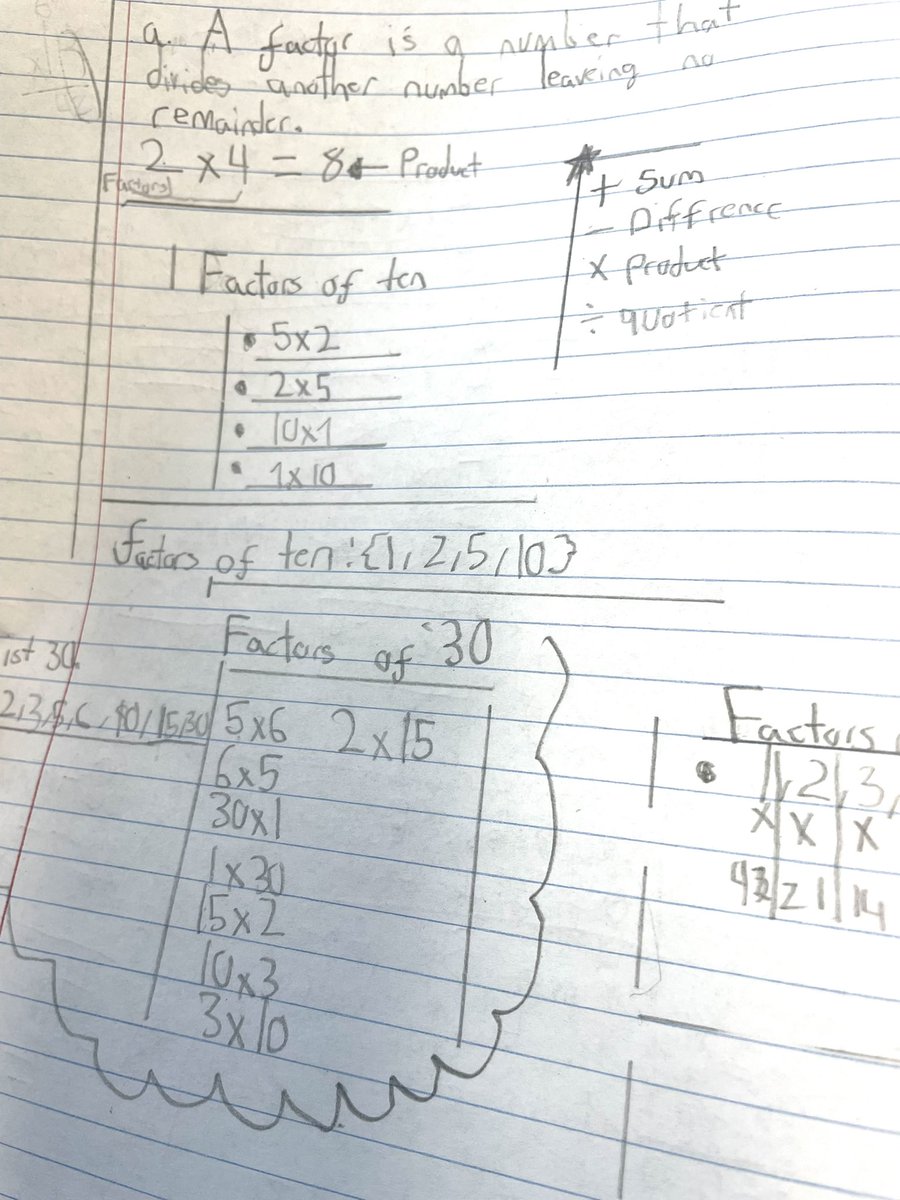 a. A factor is a number that
divides another number leaveing no
remainder.
2 x 4 = 8 ← Product
Factors
+ Sum
- Diffrence
x Product
÷ quotient
Factors of ten
• 5x2
• 2x5
• 10x1
• 1x10
factors of ten: {1, 2, 5, 10}
Factors of 30
ist 30.
2, 3, 5, 6, 10, 15, 30
5x6 2x15
6x5
30x1
1x30
15x2
10x3
3x10
Factors
• 1, 2, 3,
x x x
42 21 14